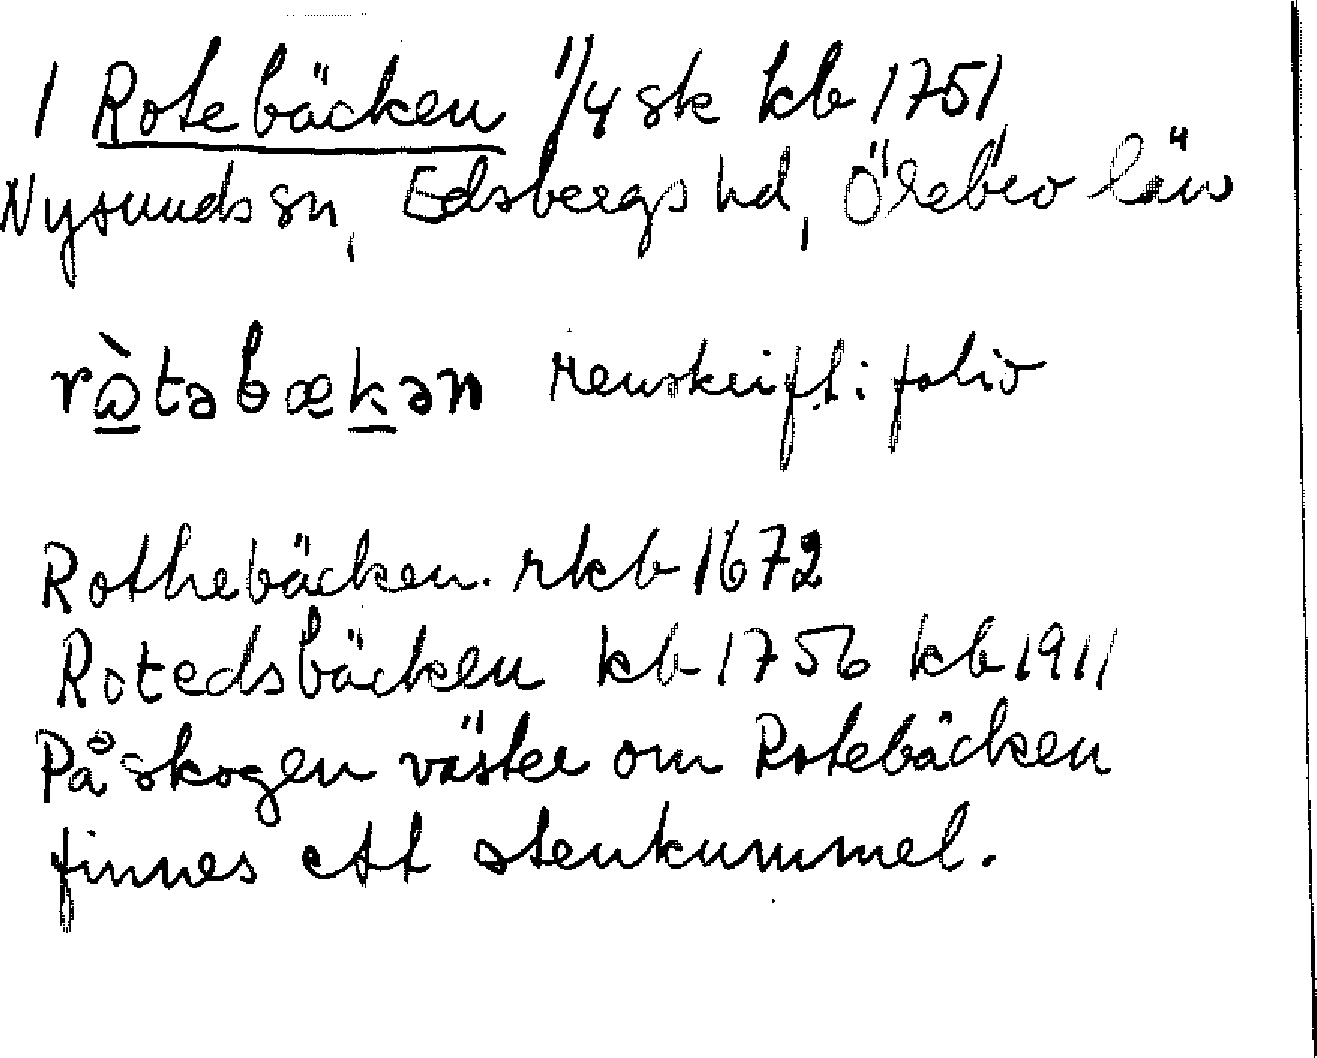 1 Rotebäcken 1/4 sk kb 1751
Nysunds sn, Edsbergs hd, Örebro län
rὼtəbæḵən renskrift i folio
Rothebäcken. rkb 1672
Rotedsbäcken kb 1756 kb 1911
På skogen väster om Rotebäcken
finnes ett stenkummel.